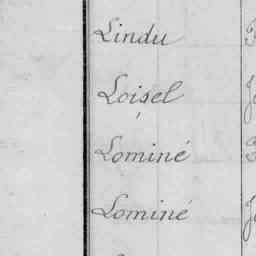 Lindu
Loisel
Lominé
Lominé